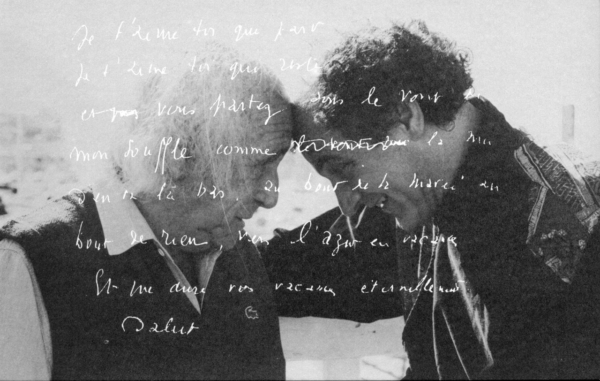 Je t'aime toi que
Je t'aime toi que reste
et vous partez dans le vent
mon souffle comme la
là bas. au bout de la marée au
bout de rien, vers l'azur en vacances
Et que dure vos vacances éternellement
Salut